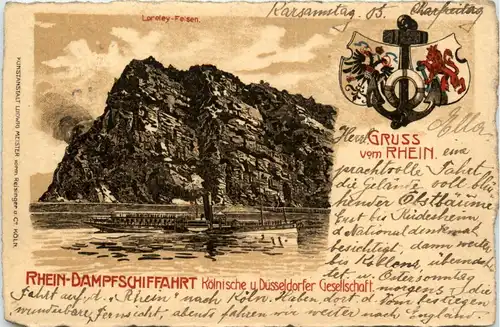 Loreley-Felsen.
Karsamstag. 05. Charfreitag
Ella
Herzl.
GRUSS
vom RHEIN.
eine
prachtvolle Fahrt
die Gelände voll blü-
hender Obstbäume
Erst bis Rüdesheim
d. Nationaldenkmal
besichtigt, dann weiter
bis Koblenz übernach-
tet u. Ostersonntag
morgens d. die
RHEIN-DAMPFSCHIFFAHRT Kölnische u. Düsseldorfer Gesellschaft.
Fahrt auf d. „Rhein" nach Köln. Haben dort d. Dom bestiegen
wunderbare Fernsicht, abends fahren wir weiter nach England.
KUNSTANSTALT LUDWIG MEISTER KÖLN.